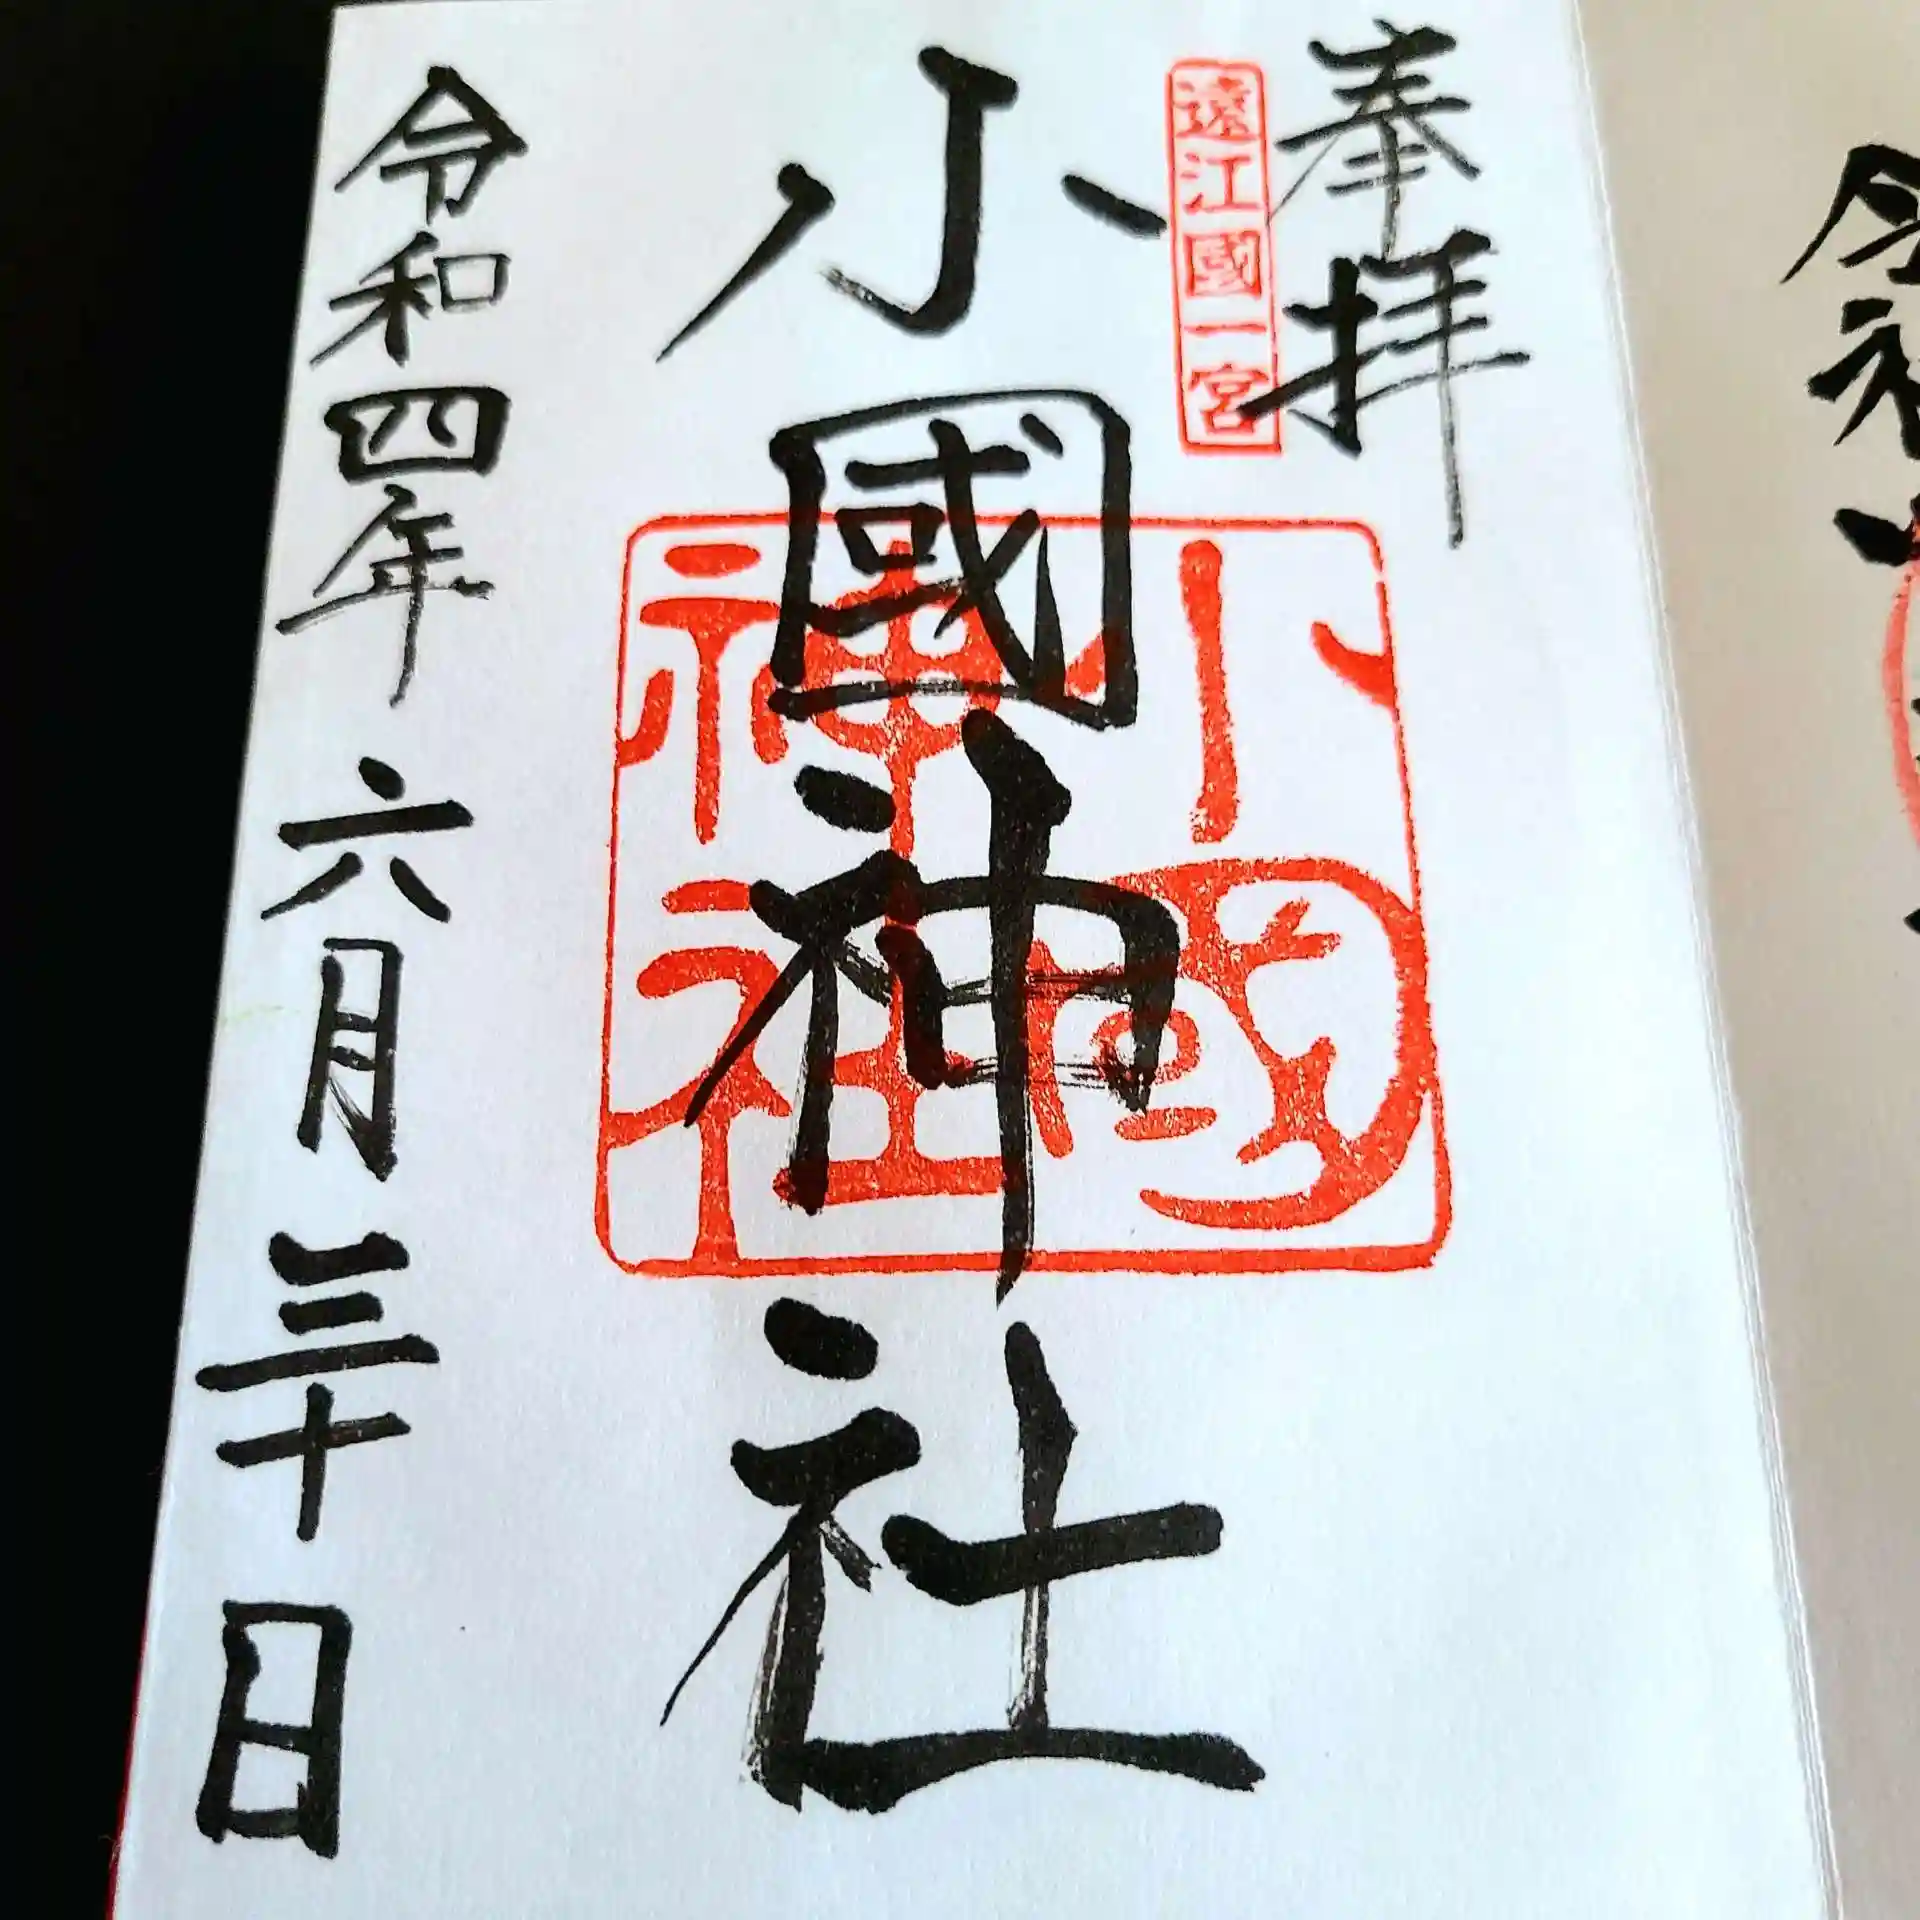 奉拝
遠江國一宮
小國神社
小國
神社
令和四年六月三十日
令和